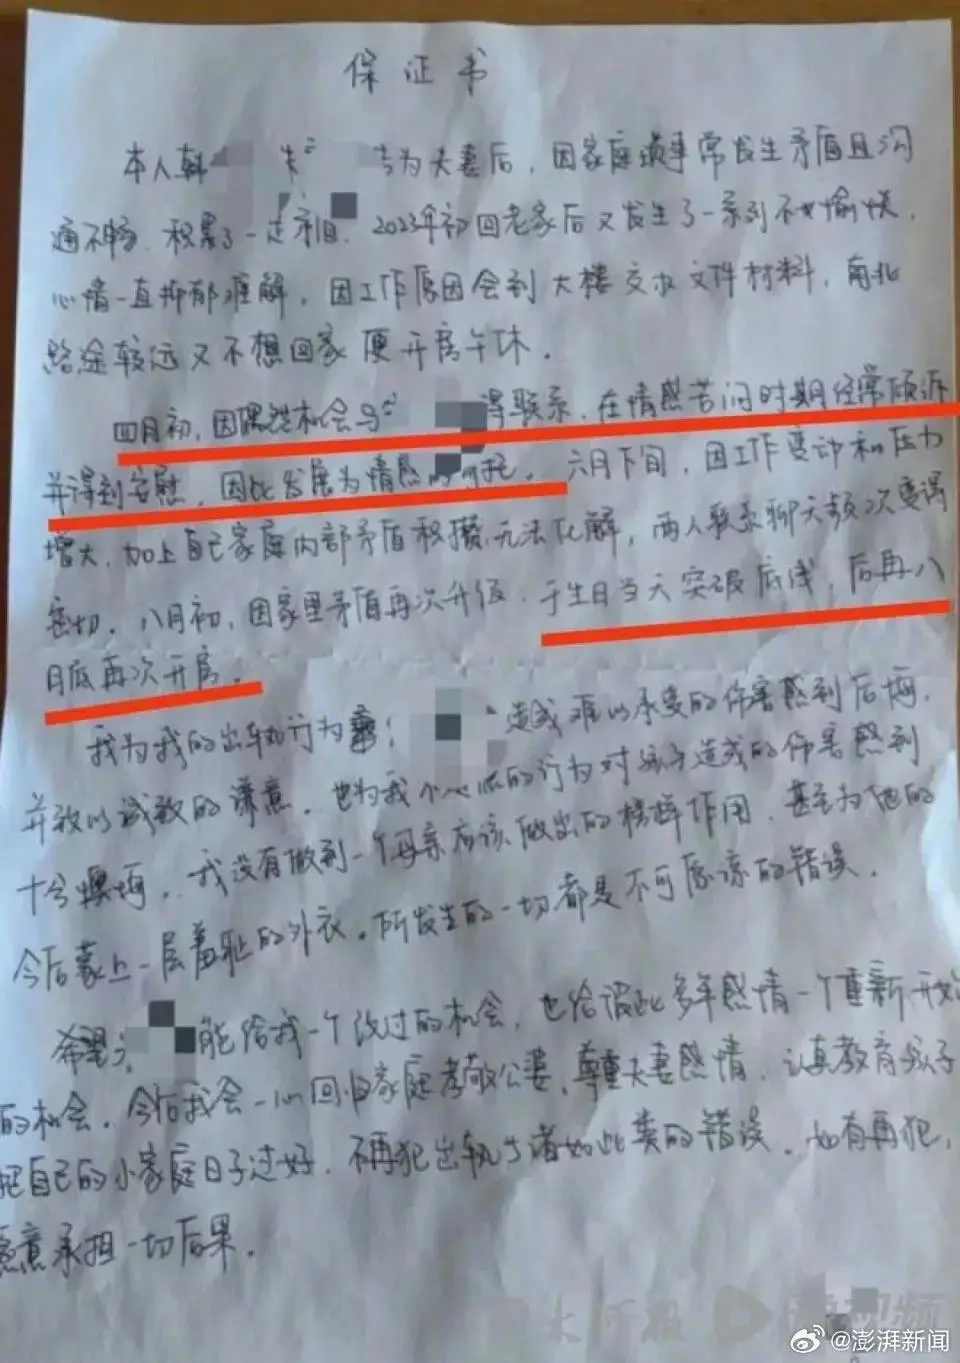 保证书
本人韩 朱 为夫妻后，因家庭琐事常发生矛盾且沟
通不畅，积累了一定矛盾，2023年初回老家后又发生了一系列不愉快，
心情一直抑郁难解，因工作原因会到大楼交收文件材料，南北
路途较远又不想回家便开房午休。
四月初，因偶然机会与 得联系，在情感苦闷时期经常倾诉
并得到安慰，因此发展为情感的 托。六月下旬，因工作变动和压力
增大，加上自己家庭内部矛盾积攒无法化解，两人联系聊天频次变得
密切。八月初，因家里矛盾再次升级，于生日当天突破底线，后再八
月底再次开房。
我为我的出轨行为 造成难以承受的伤害感到后悔，
并致以诚致的谦意，也为我 的行为对孩子造成的伤害感到
十分懊悔，我没有做到一个母亲应该做出的榜样作用，甚至为他的
今后蒙上一层羞耻的外衣。所发生的一切都是不可原谅的错误。
希望 能给我一个改过的机会，也给彼此多年感情一个重新开始
的机会，今后我会一心回归家庭孝敬公婆，尊重夫妻感情，认真教育孩子
把自己的小家庭日子过好，不再犯出轨 诸如此类的错误，如有再犯，
愿意承担一切后果。
大河报
视频
@澎湃新闻